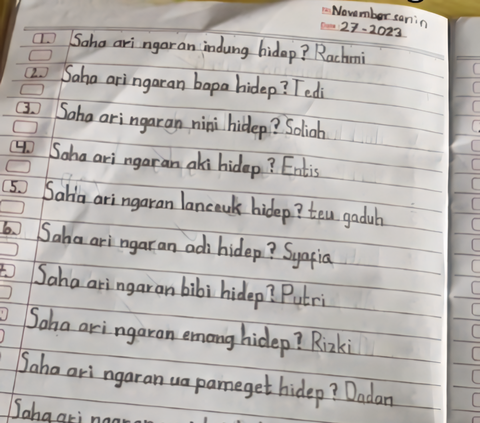 November senin
27-2023
1. Saha ari ngaran indung hidep? Rachmi
2. Saha ari ngaran bapa hidep? Tedi
3. Saha ari ngaran nini hidep? Soliah
4. Saha ari ngaran aki hidep? Entis
5. Saha ari ngaran lanceuk hidep? teu gaduh
6. Saha ari ngaran adi hidep? Syafia
7. Saha ari ngaran bibi hidep? Putri
Saha ari ngaran emang hidep? Rizki
Saha ari ngaran ua pameget hidep? Dadan
Saha ari